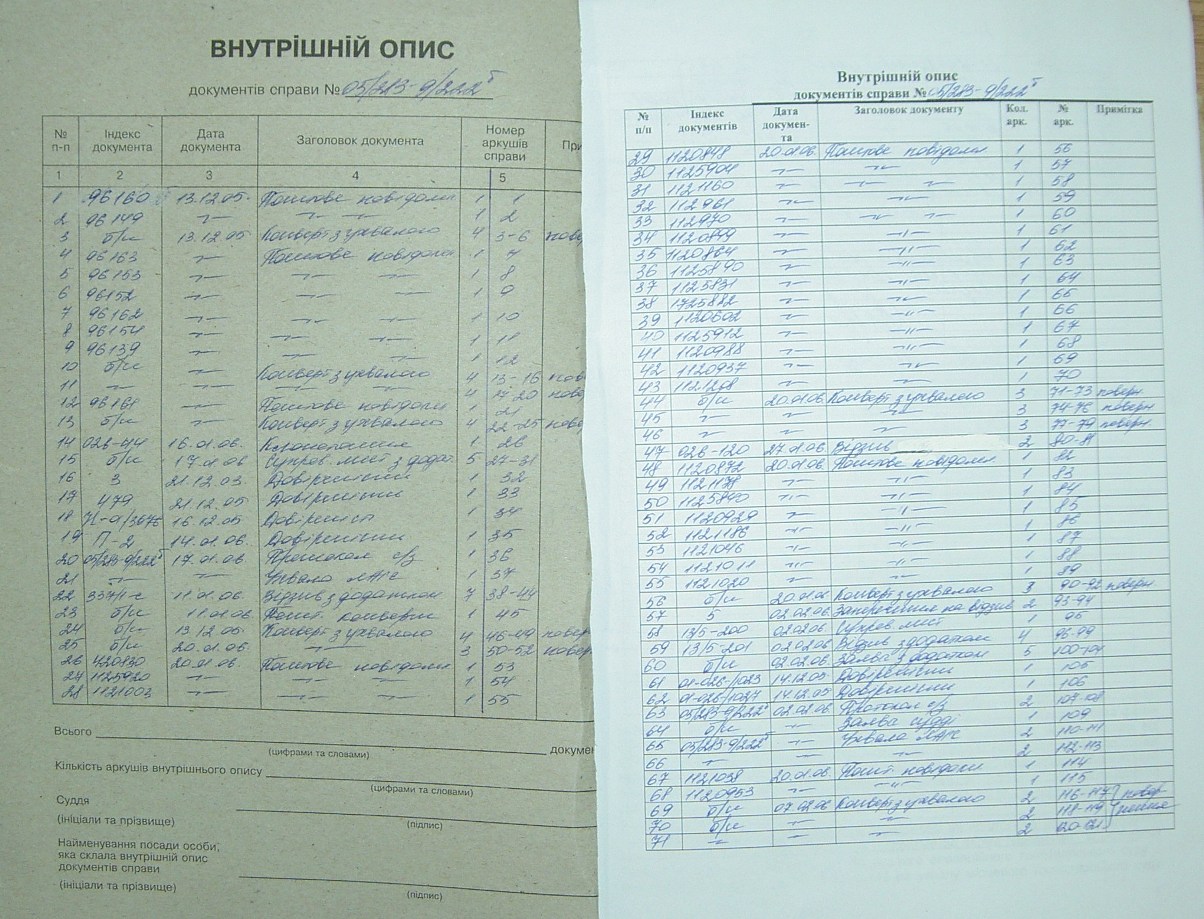 ВНУТРІШНІЙ ОПИС
документів справи № 05/213-9/222
№ п-п Індекс документа Дата документа Заголовок документа Номер аркушів справи При
1 2 3 4 5
1 96160 13.12.05. Поштове повідомл 1 1
2 96149 —"— —"— —"— 1 2
3 б/н 13.12.05 Конверт з ухвалою 4 3-6
4 96163 —"— Поштове повідомл 1 7
5 96153 —"— —"— —"— 1 8
6 96152 —"— —"— —"— 1 9
7 96162 —"— —"— —"— 1 10
8 96154 —"— —"— —"— 1 11
9 96139 —"— —"— —"— 1 12
10 б/н —"— Конверт з ухвалою 4 13-16
11 —"— —"— —"— —"— 4 17-20
12 96161 —"— Поштове повідомл 1 21
13 б/н —"— Конверт з ухвалою 4 22-25
14 026-44 16.01.06. Клопотання 1 26
15 б/н 17.01.06 Супров. лист з додат. 5 27-31
16 3 21.12.05. Довіреність 1 32
17 479 21.12.05 Довіреність 1 33
18 16.12.05 Довіреність 1 34
19 П-2 14.01.06. Довіреність 1 35
20 05/213-9/222 17.01.06 Протокол с/з 1 36
21 —"— —"— Ухвала 1 37
22 11.01.06. Відзив з додатком 7 38-44
23 б/н 11.01.06 Пошт. конверт 1 45
24 б/н 13.12.05. Конверт з ухвалою 4 46-49
25 б/н 20.01.06. —"— 3 50-52
26 20.01.06. Поштове повідомл 1 53
27 1125920 —"— —"— —"— 1 54
28 1121003 —"— —"— —"— 1 55
Всього
докумен
(цифрами та словами)
Кількість аркушів внутрішнього опису
(цифрами та словами)
Суддя
(ініціали та прізвище)
(підпис)
Найменування посади особи,
яка склала внутрішній опис
документів справи
(ініціали та прізвище)
(підпис)
Внутрішній опис
документів справи № 05/213-9/222
№ п/п Індекс документів Дата докумен-та Заголовок документу Кол. арк. № арк. Примітка
29 1120848 20.01.06. Поштове повідомл 1 56
30 1125904 —"— —"— 1 57
31 1121160 —"— —"— —"— 1 58
32 112961 —"— —"— 1 59
33 112970 —"— —"— —"— 1 60
34 1120899 —"— —"— 1 61
35 1120864 —"— —"— 1 62
36 1125890 —"— —"— 1 63
37 1125831 —"— —"— 1 64
38 1725882 —"— —"— 1 65
39 1120602 —"— —"— 1 66
40 1125912 —"— —"— 1 67
41 1120988 —"— —"— 1 68
42 1120937 —"— —"— 1 69
43 1121208 —"— —"— 1 70
44 б/н 20.01.06. Конверт з ухвалою 3 71-73 поверн
45 —"— —"— —"— 3 74-76 поверн
46 —"— —"— —"— 3 77-79 поверн
47 026-120 27.01.06 Відзив 2 80-81
48 1120872 20.01.06. Поштове повідомл 1 82
49 1121178 —"— —"— 1 83
50 1125840 —"— —"— 1 84
51 1120929 —"— —"— 1 85
52 1121186 —"— —"— 1 86
53 1121046 —"— —"— 1 87
54 1121011 —"— —"— 1 88
55 1121020 —"— —"— 1 89
56 б/н 20.01.06 Конверт з ухвалою 3 90-92 поверн
57 5 02.02.06 Заперечення на відзив 2 93-94
58 13/5-200 02.02.06 Супров. лист 1 95
59 13/5-201 02.02.06 Відзив з додатком 4 96-99
60 б/н 02.02.06. Заява з додатком 5 100-104
61 01-026/1023 14.12.05 Довіреність 1 105
62 01-026/1027 14.12.05 Довіреність 1 106
63 05/213-9/222 02.02.06 Протокол с/з 2 107-108
64 б/н —"— Заява судді 1 109
65 05/213-9/222 —"— Ухвала 2 110-111
66 —"— —"— —"— 2 112-113
67 1121038 20.01.06. Пошт. повідомл 1 114
68 1120953 —"— —"— 1 115
69 б/н 07.02.06 Конверт з ухвалою 2 116-117
70 б/н —"— —"— 2 118-119
71 —"— —"— —"— 2 120-121